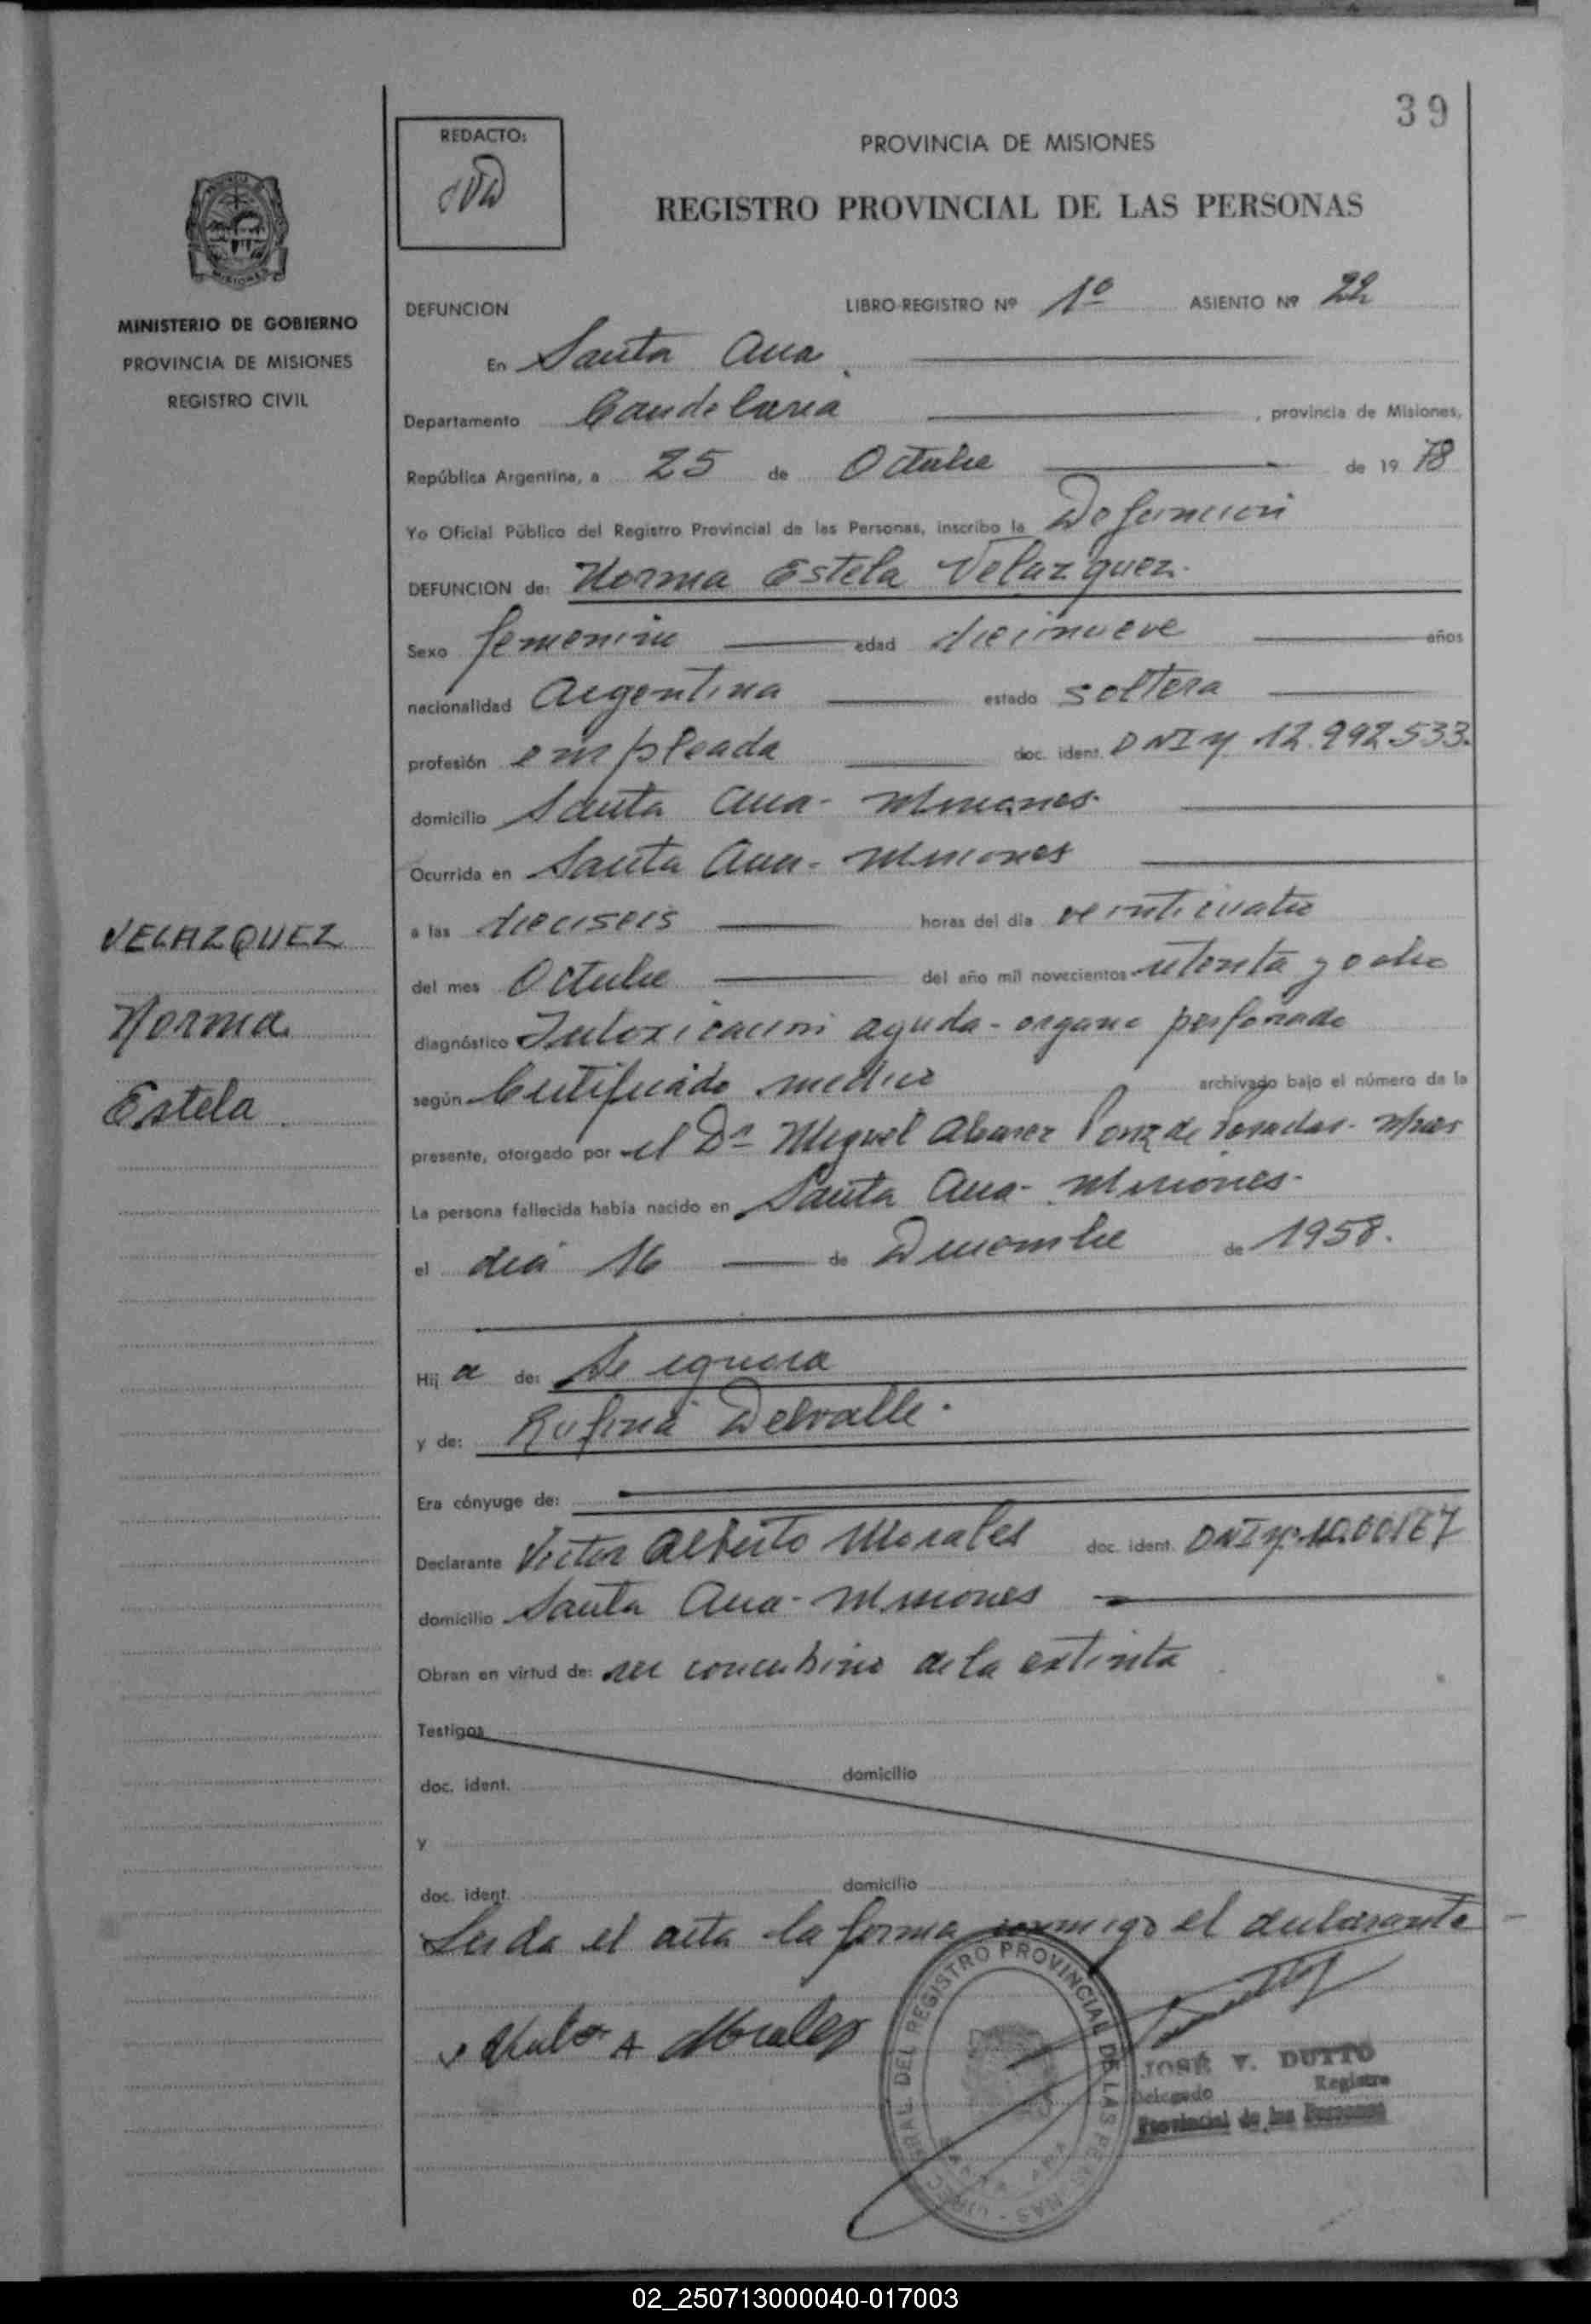 39
REDACTO:
PROVINCIA DE MISIONES
REGISTRO PROVINCIAL DE LAS PERSONAS
MISIONES
MINISTERIO DE GOBIERNO
PROVINCIA DE MISIONES
REGISTRO CIVIL
DEFUNCION LIBRO-REGISTRO Nº 1º ASIENTO Nº 22
En Santa Ana
Departamento Candelaria, provincia de Misiones,
República Argentina, a 25 de Octubre de 1978
Yo Oficial Público del Registro Provincial de las Personas, inscribo la Defuncion
DEFUNCION de: Norma Estela Velazquez.
Sexo femenino edad diecinueve años
nacionalidad Argentina estado soltera
profesión empleada doc. ident. DNI Nº 12.992.533.
domicilio Santa Ana - Misiones.
Ocurrida en Santa Ana - Misiones
a las dieciseis horas del día veinticuatro
del mes Octubre del año mil novecientos setenta y ocho
diagnóstico Intoxicacion aguda - organo perforado
según Certificado medico archivado bajo el número de la
presente, otorgado por el Dr Miguel Alvarez de Posadas - Mnes
La persona fallecida había nacido en Santa Ana - Misiones -
el dia 16 de Diciembre de 1958.
Hija de: Se ignora
y de: Rufina Delvalle.
Era cónyuge de:
Declarante Victor Alberto Morales doc. ident. DNI Nº
domicilio Santa Ana - Misiones
Obran en virtud de: ser concubino de la extinta
Testigos
doc. ident. domicilio
y
doc. ident. domicilio
Leida el acta la firma conmigo el declarante
A Morales
REGISTRO PROVINCIAL DE LAS PERSONAS
JOSÉ V. DUTTO
Delegado Registro
Provincial de las Personas
VELAZQUEZ
Norma
Estela
02_250713000040-017003